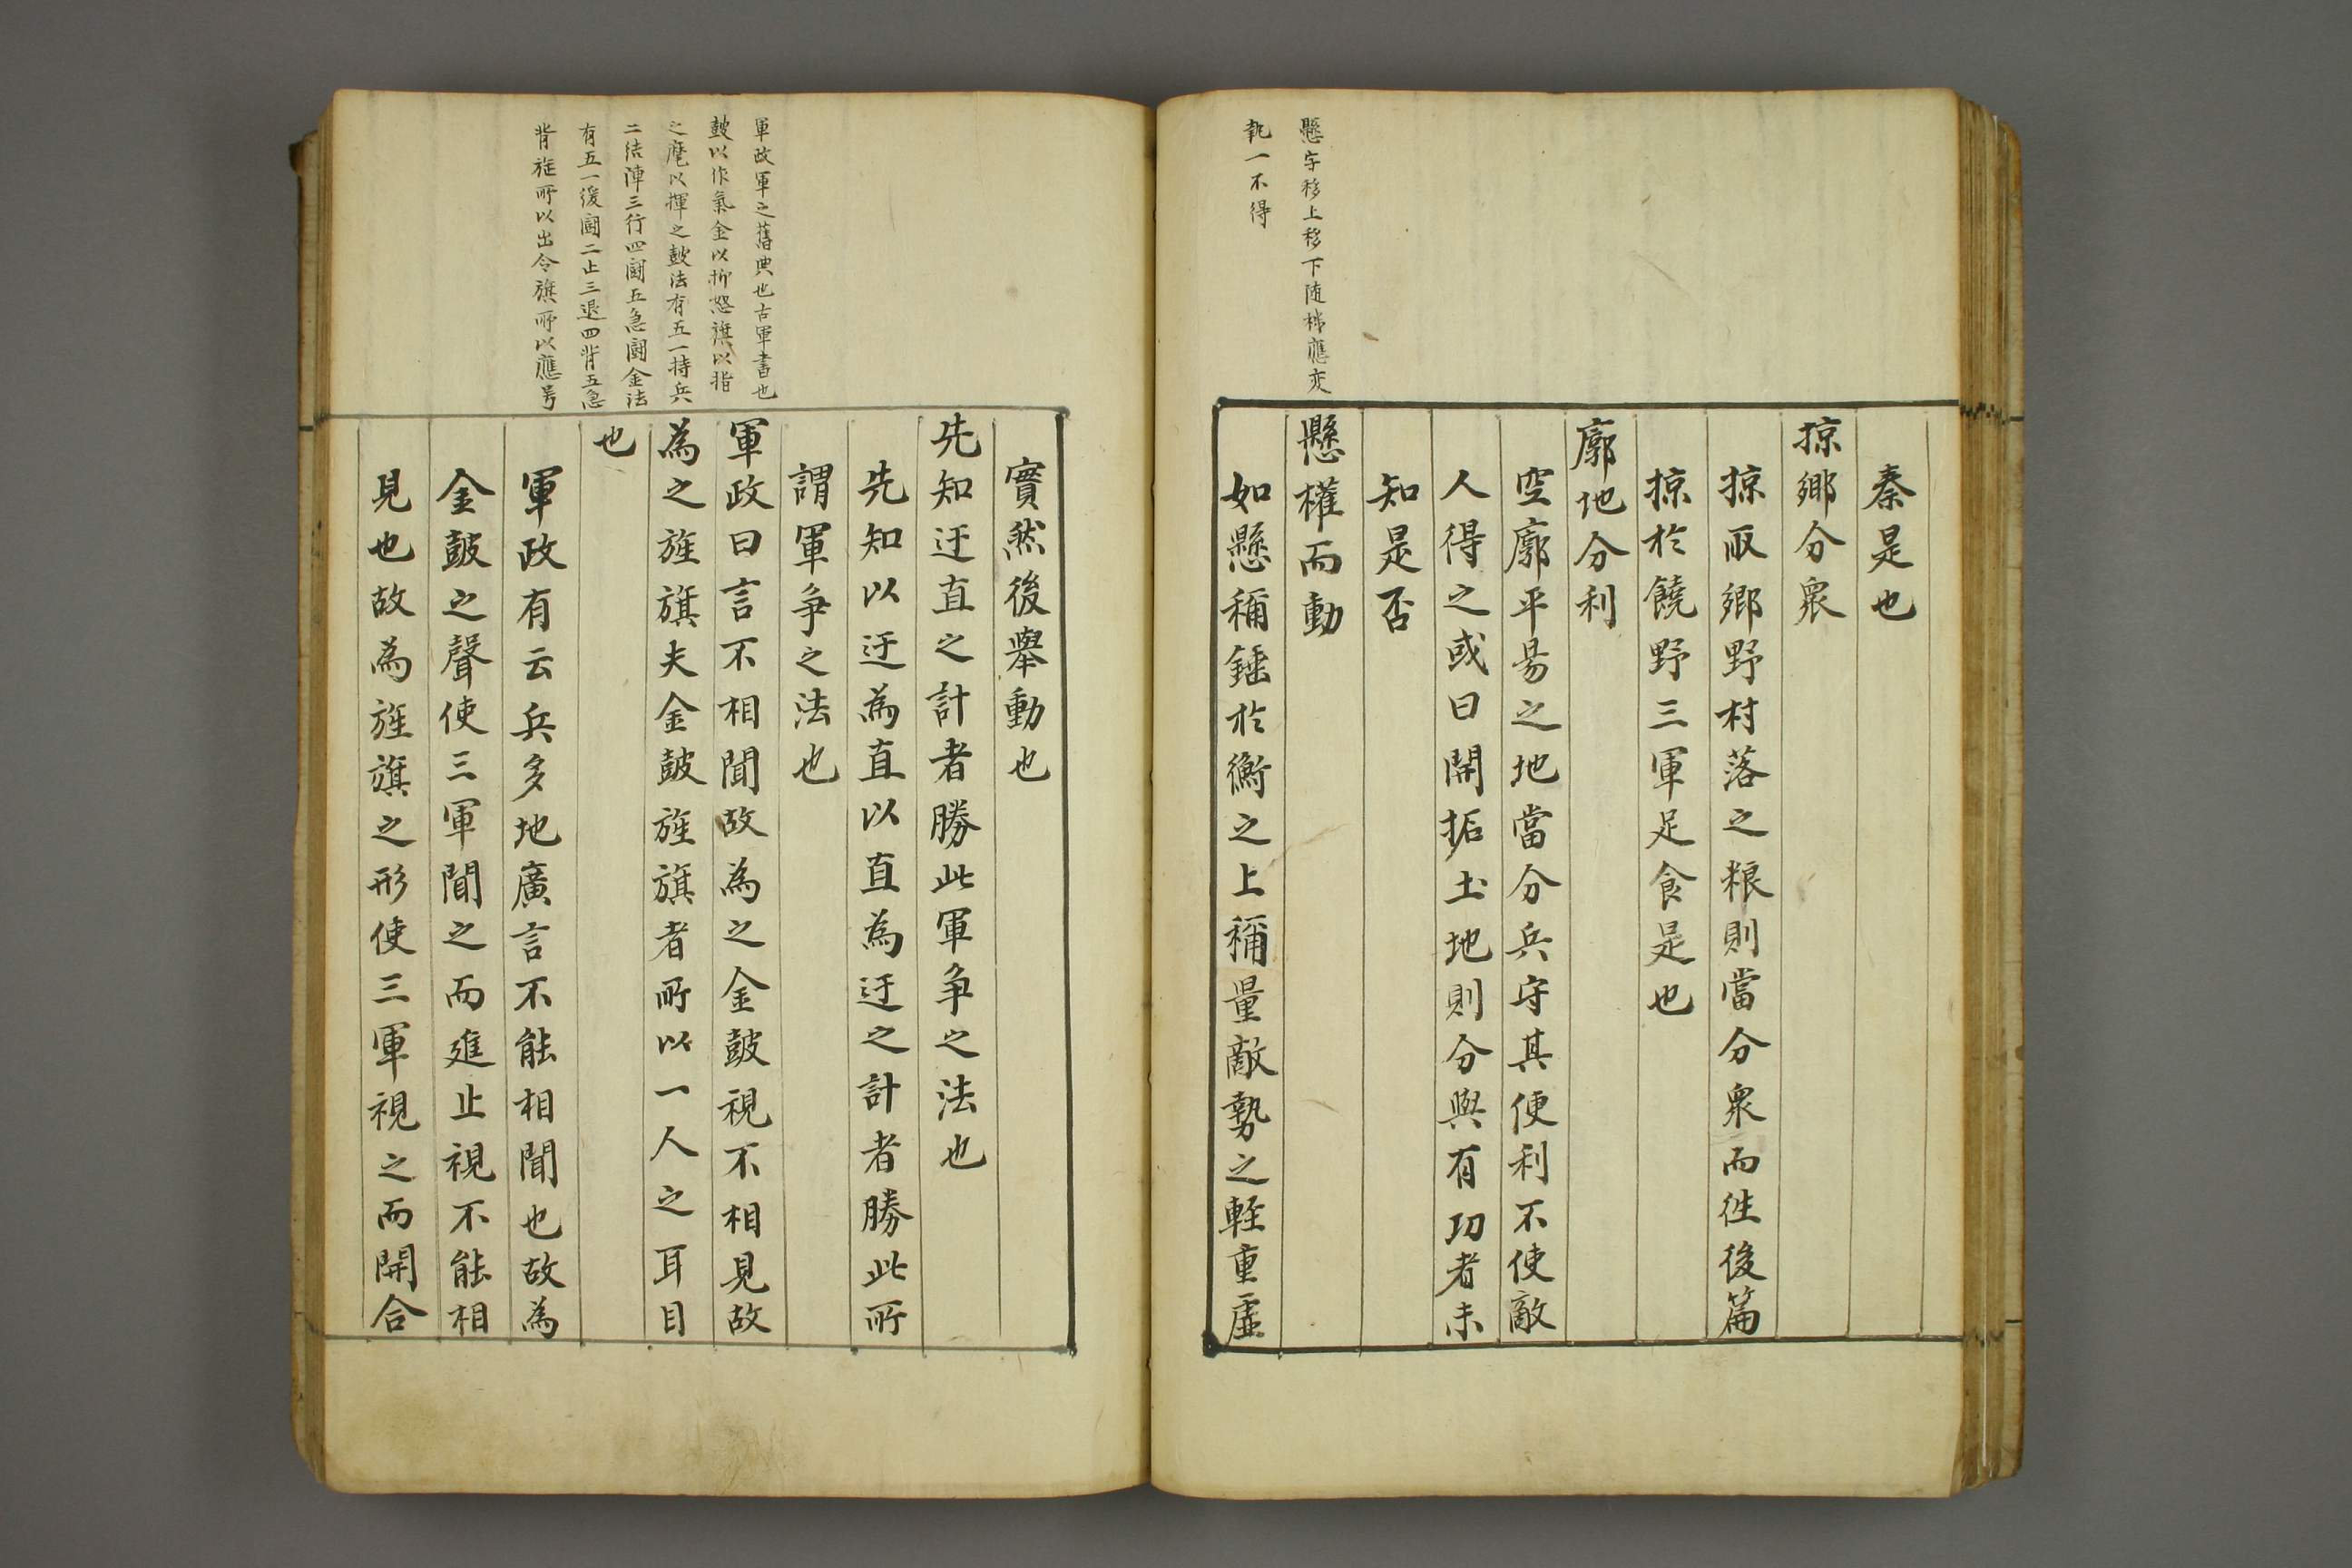 懸字移上移下随梯應变
執一不得
秦是也
掠鄉分衆
掠取鄉野村落之粮則當分衆而徃後篇
掠於饒野三軍足食是也
廓地分利
空廓平昜之地當分兵守其便利不使敵
人得之或曰開拓土地則分與有功者未
知是否
懸權而動
如懸稱錘於衡之上稱量敵勢之輊重虛
軍政軍之舊典也古軍書也
皷以作氣金以抑怒旗以指
之麾以揮之皷法有五一持兵
二结陣三行四鬪五急鬪金法
有五一缓鬪二止三退四背五急
背旌所以出令旗所以應号
實然後舉動也
先知迂直之計者勝此軍争之法也
先知以迂為直以直為迂之計者勝此所
謂軍争之法也
軍政曰言不相聞故為之金皷視不相見故
為之旌旗夫金皷旌旗者所以一人之耳目
也
軍政有云兵多地廣言不能相聞也故為
金皷之聲使三軍聞之而進止視不能相
見也故為旌旗之形使三軍視之而開合